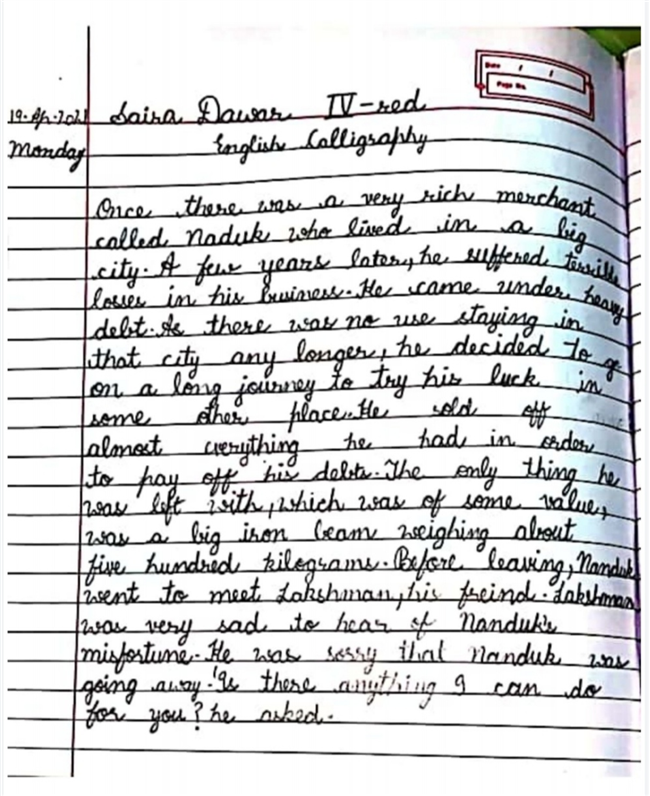 Date / /
Page No.
19-Ap-2021 Saira Dawar IV-red
Monday English Calligraphy
Once there was a very rich merchant
called Naduk who lived in a big
city. A few years later, he suffered terrible
losses in his business. He came under heavy
debt. As there was no use staying in
that city any longer, he decided to go
on a long journey to try his luck in
some other place. He sold off
almost everything he had in order
to pay off his debts. The only thing he
was left with, which was of some value,
was a big iron beam weighing about
five hundred kilograms. Before leaving, Nanduk
went to meet Lakshman, his freind. Lakshman
was very sad to hear of Nanduk's
misfortune. He was sorry that Nanduk was
going away. 'Is there anything I can do
for you? he asked.